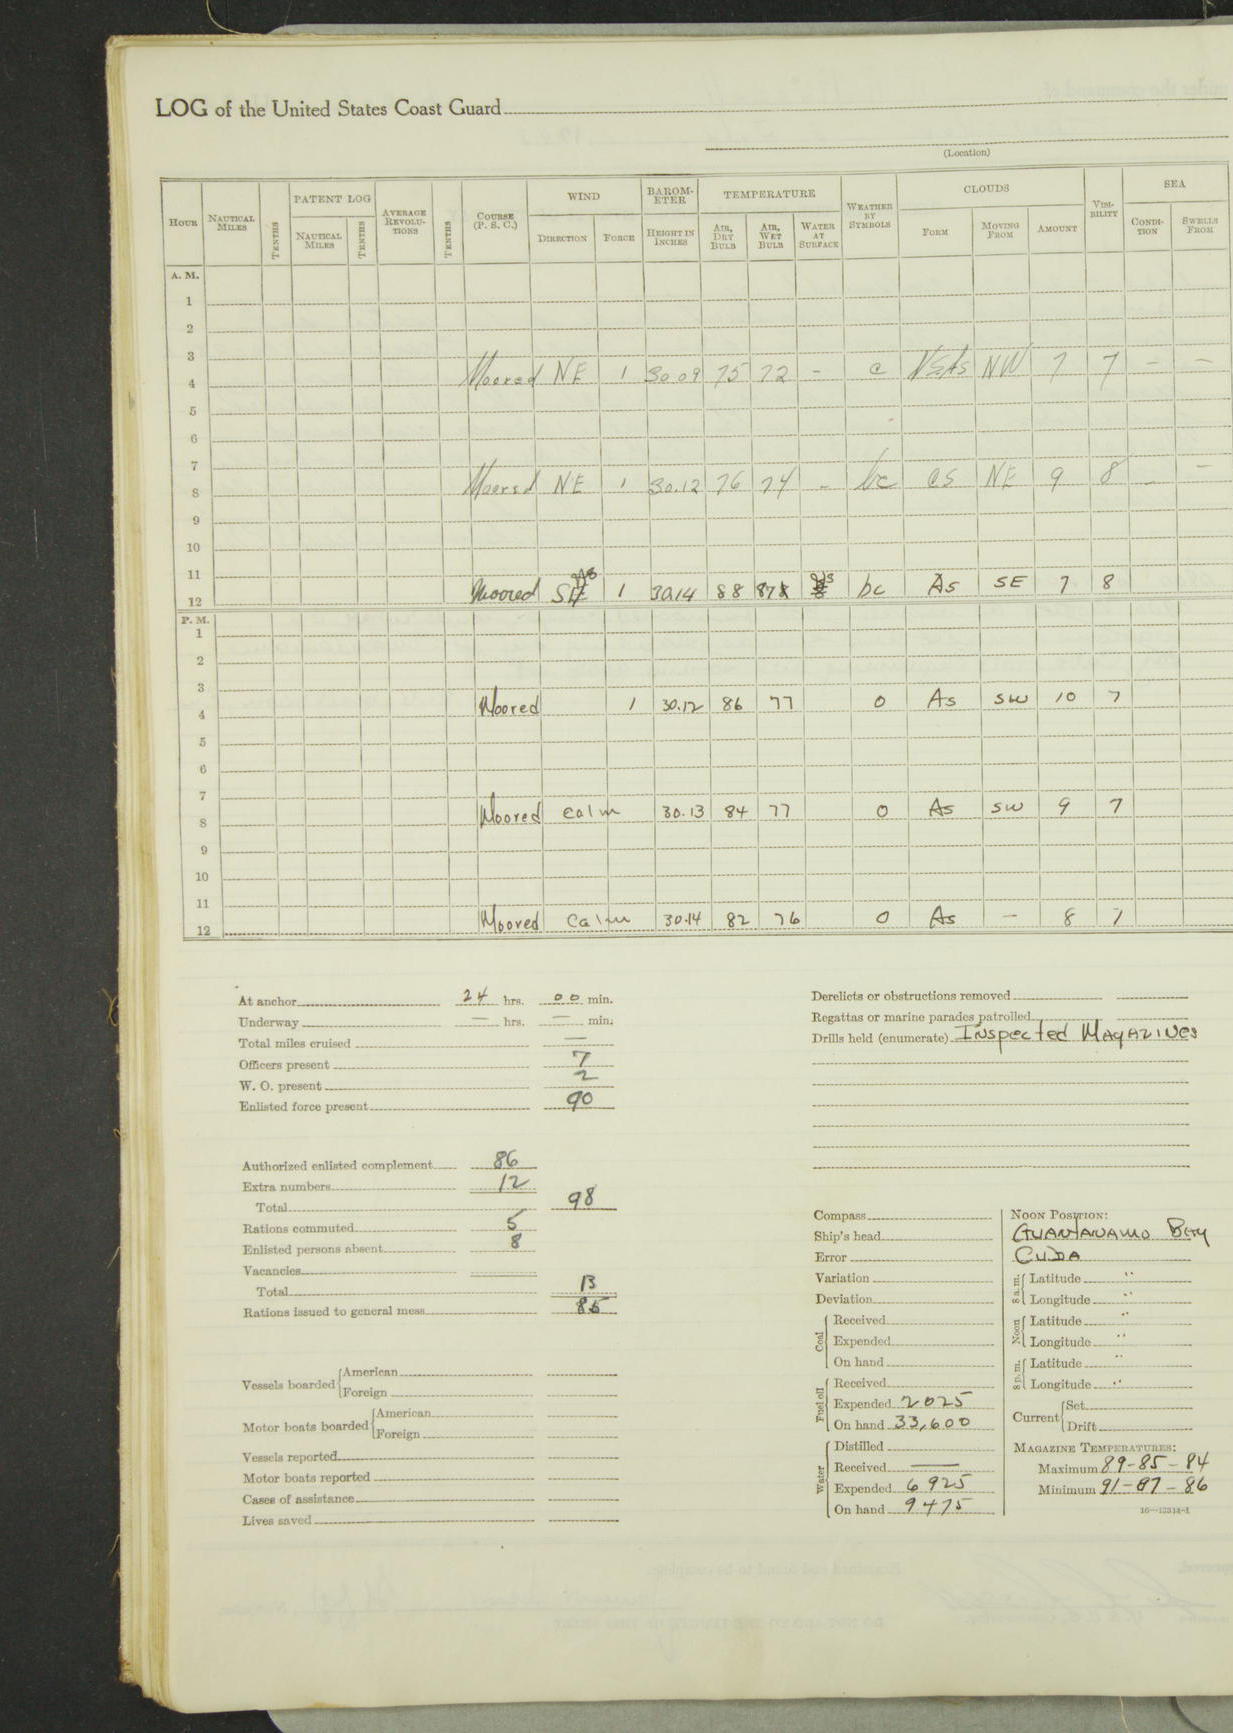 LOG of the United States Coast Guard
(Location)
HOUR NAUTICAL MILES TENTHS PATENT LOG NAUTICAL MILES TENTHS AVERAGE REVOLU-TIONS TENTHS COURSE (P. S. C.) WIND DIRECTION FORCE BAROM-ETER HEIGHT IN INCHES TEMPERATURE AIR, DRY BULB AIR, WET BULB WATER AT SURFACE WEATHER BY SYMBOLS CLOUDS FORM MOVING FROM AMOUNT VISI-BILITY SEA CONDI-TION SWELLS FROM
A. M.
1
2
3
4 Moored NE 1 30.09 75 72 - c NW 7 7 - -
5
6
7
8 Moored NE 1 30.12 76 74 - bc cs NE 9 8 - -
9
10
11
12 Moored 1 30.14 88 bc As SE 7 8
P. M.
1
2
3
4 Moored 1 30.12 86 77 0 As SW 10 7
5
6
7
8 Moored calm 30.13 84 77 0 As SW 9 7
9
10
11
12 Moored calm 30.14 82 76 0 As - 8 7
At anchor 24 hrs. 00 min.
Underway — hrs. — min.
Total miles cruised —
Officers present 7
W. O. present 2
Enlisted force present 90
Authorized enlisted complement 86
Extra numbers 12
Total 98
Rations commuted 5
Enlisted persons absent 8
Vacancies
Total 13
Rations issued to general mess 85
Vessels boarded American
Foreign
Motor boats boarded American
Foreign
Vessels reported
Motor boats reported
Cases of assistance
Lives saved
Derelicts or obstructions removed
Regattas or marine parades patrolled
Drills held (enumerate) Inspected Magazines
Compass
Ship's head
Error
Variation
Deviation
Coal Received
Expended
On hand
Fuel oil Received
Expended 2025
On hand 33,600
Water Distilled
Received —
Expended 6925
On hand 9475
NOON POSITION:
GUANTANAMO Bay
CUBA
8 a.m. Latitude "
Longitude "
Noon Latitude "
Longitude "
8 p.m. Latitude "
Longitude "
Current Set
Drift
MAGAZINE TEMPERATURES:
Maximum 89-85-84
Minimum 91-87-86
16—13314-1